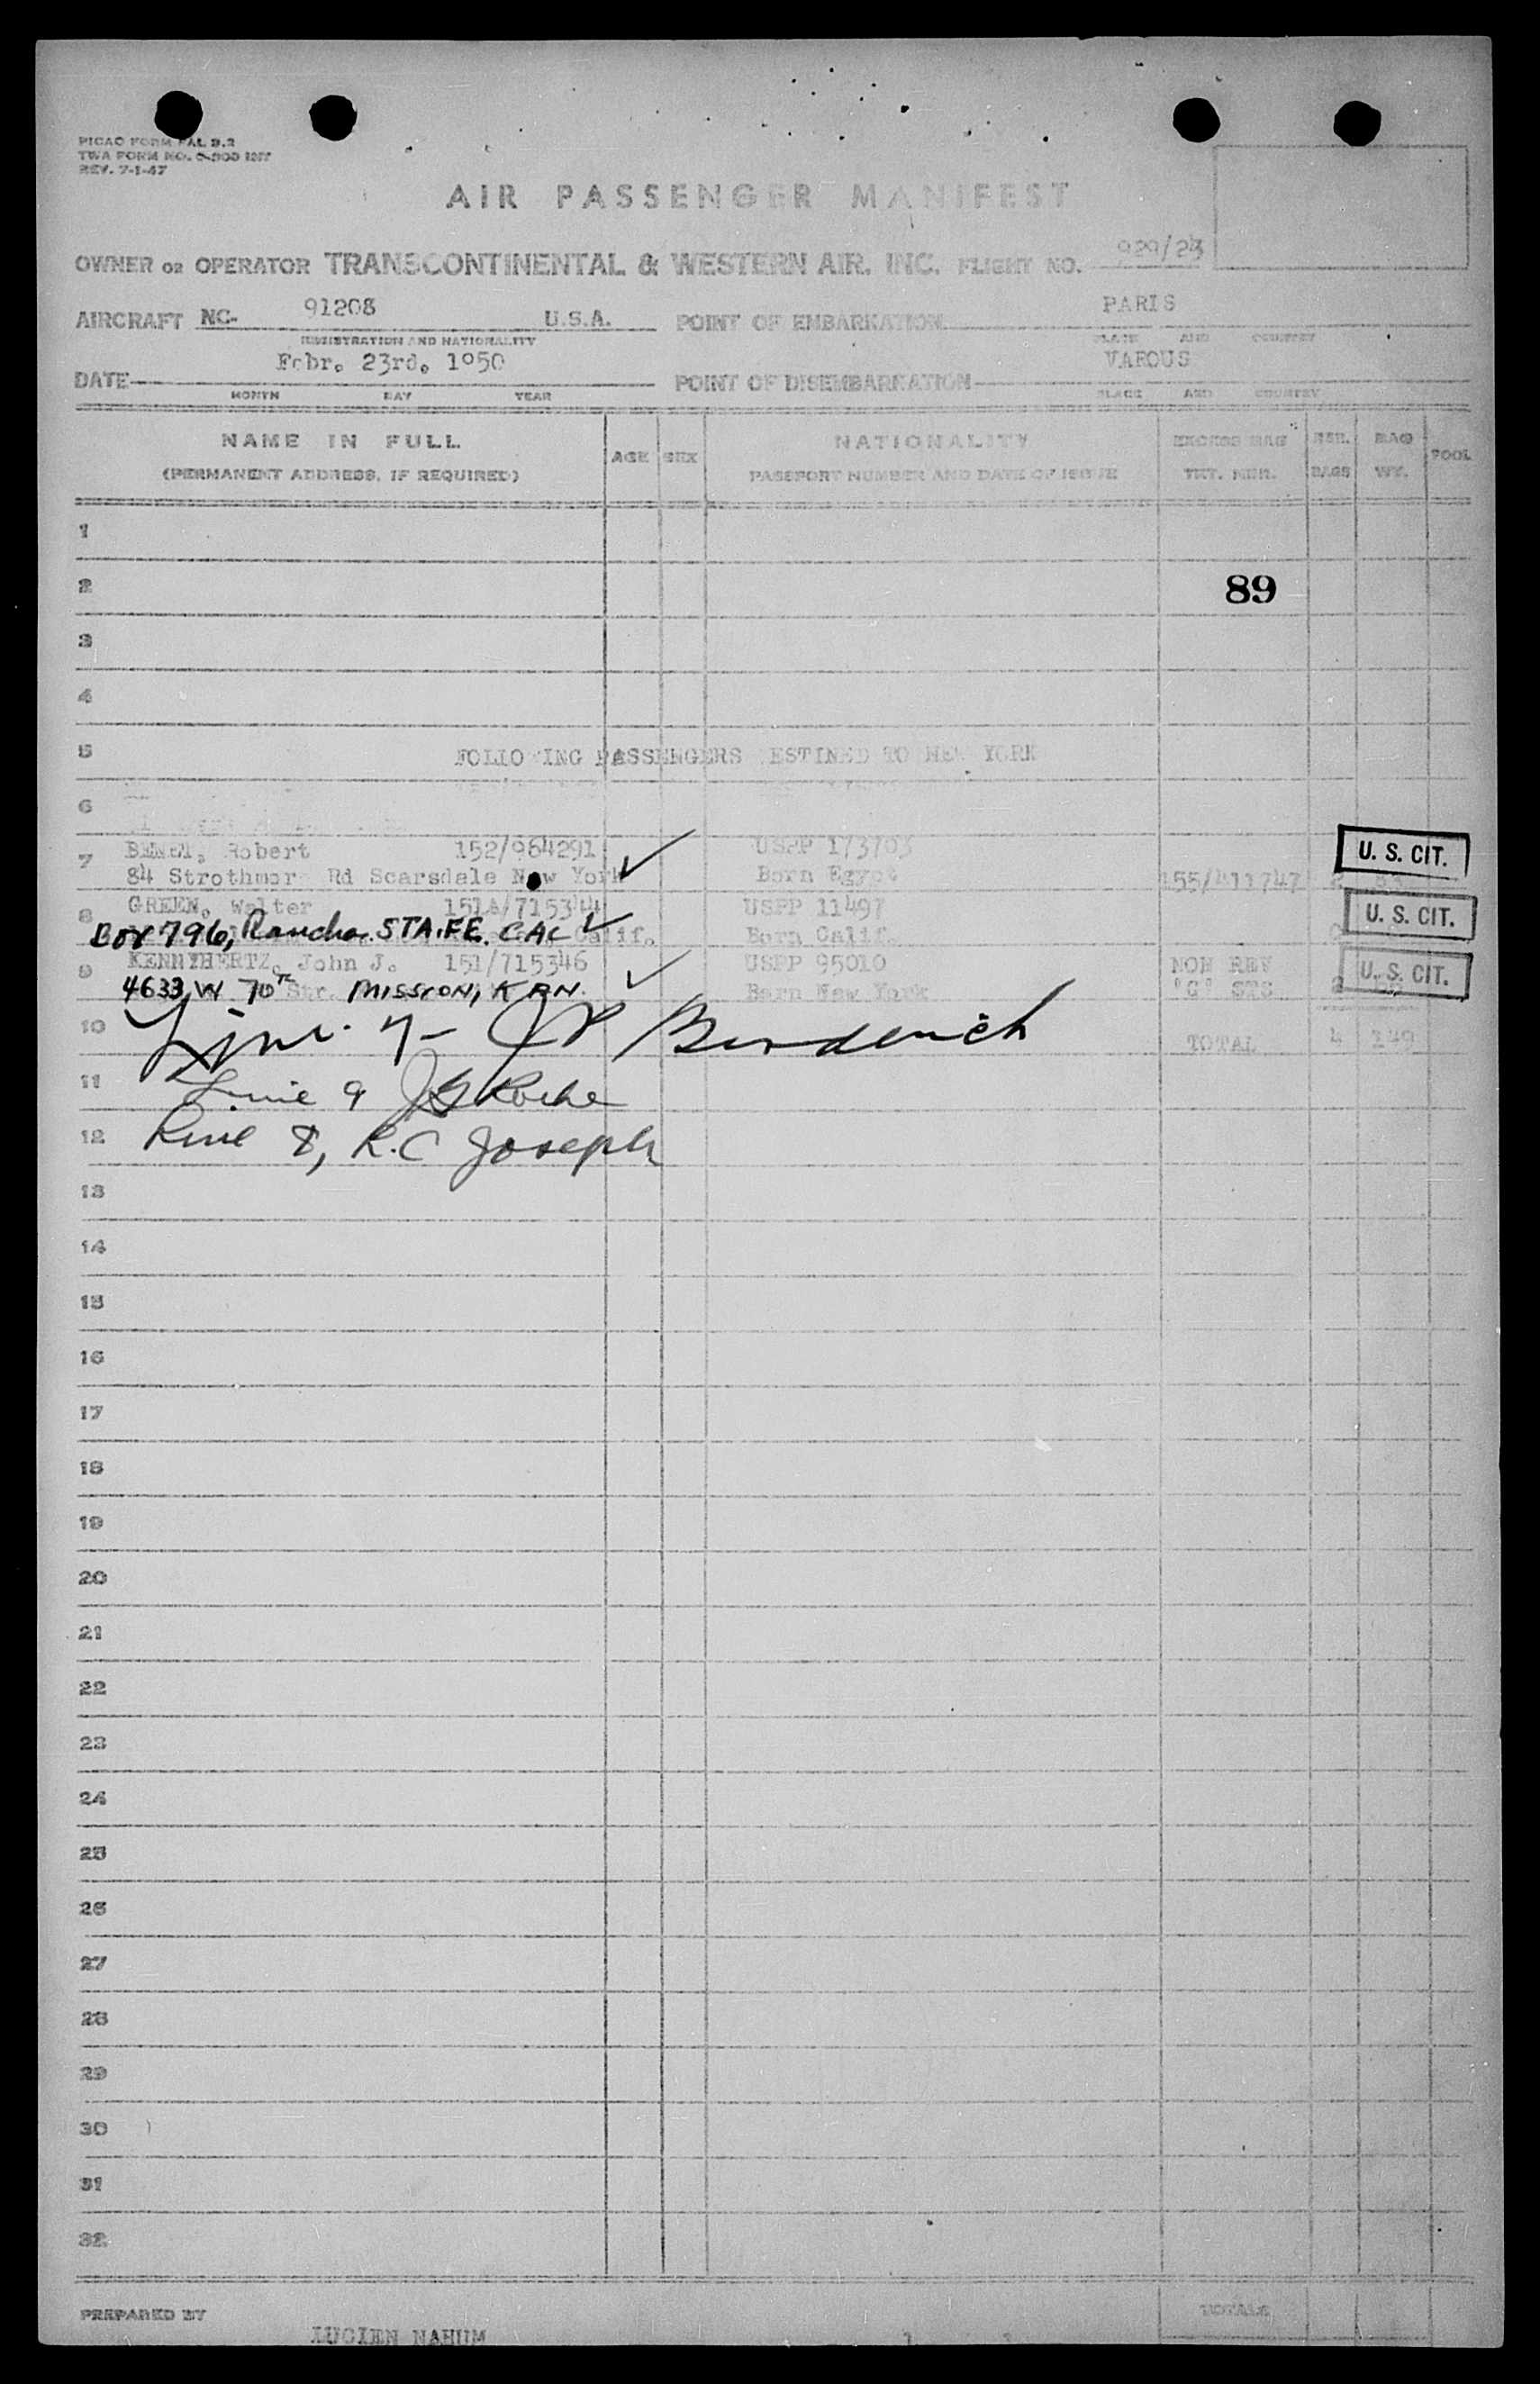 PICAO FORM FAL 9.2
TWA FORM NO.
REV. 7-1-47
AIR PASSENGER MANIFEST
OWNER OR OPERATOR TRANSCONTINENTAL & WESTERN AIR. INC. FLIGHT NO. 929/23
AIRCRAFT NC- 91208 U.S.A. POINT OF EMBARKATION PARIS
REGISTRATION AND NATIONALITY PLACE AND COUNTRY
DATE Febr. 23rd. 1950 POINT OF DISEMBARKATION VAROUS
MONTH DAY YEAR PLACE AND COUNTRY
NAME IN FULL AGE SEX NATIONALITY EXCESS BAG NBR. BAG POOL
(PERMANENT ADDRESS, IF REQUIRED) PASSPORT NUMBER AND DATE OF ISSUE TKT. NBR. BAGS WT.
1
2 89
3
4
5 FOLLO ING PASSENGERS ESTINED TO NEW YORK
6
7 Robert 152/964291 USPP 173703 U. S. CIT.
84 Strothmor Rd Scarsdale New York Born Egypt 155/411747 2
8 GREEN, Walter 151A/715344 USPP 11497 U. S. CIT.
Box 796, Rancho. STA. FE. CAL Calif. Born Calif.
9 KENNYHERTZ, John J. 151/715346 USPP 95010 NON REV U. S. CIT.
4633 W 70TH Str. MISSION, KAN. Born New York "G" STS 2
10 Line 7- TOTAL 4 149
11 Line 9 JG Roche
12 Line 8, R.C Joseph
13
14
15
16
17
18
19
20
21
22
23
24
25
26
27
28
29
30
31
32
PREPARED BY TOTALS
LUCIEN NAHUM